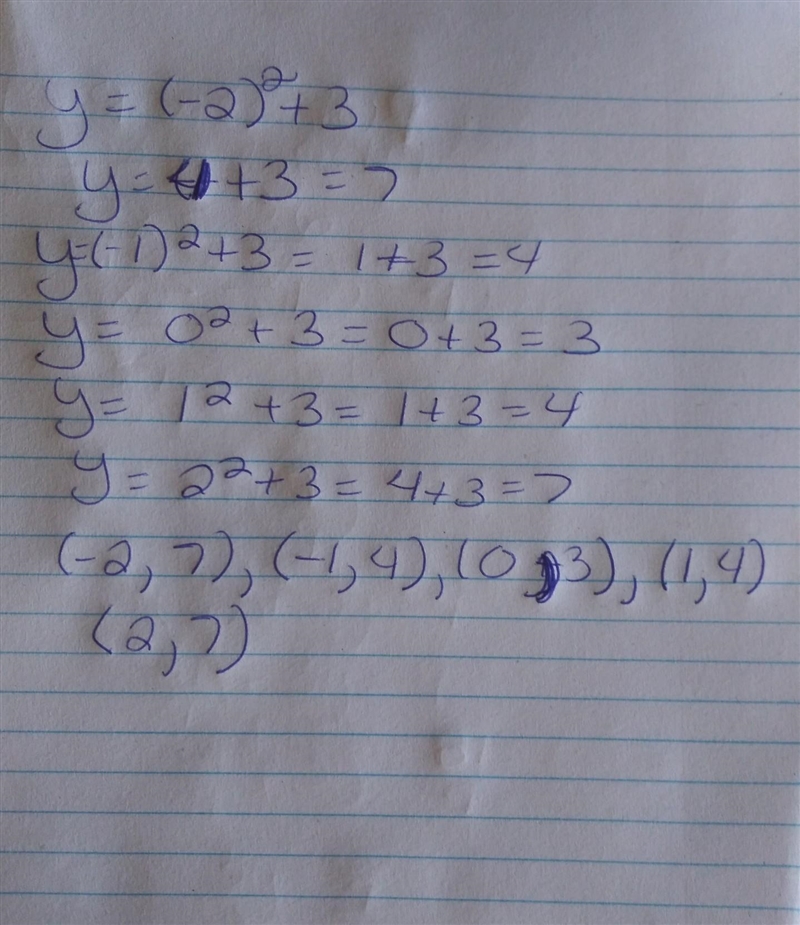 y = (-2)² + 3
y = 4 + 3 = 7
y = (-1)² + 3 = 1 + 3 = 4
y = 0² + 3 = 0 + 3 = 3
y = 1² + 3 = 1 + 3 = 4
y = 2² + 3 = 4 + 3 = 7
(-2, 7), (-1, 4), (0, 3), (1, 4)
(2, 7)